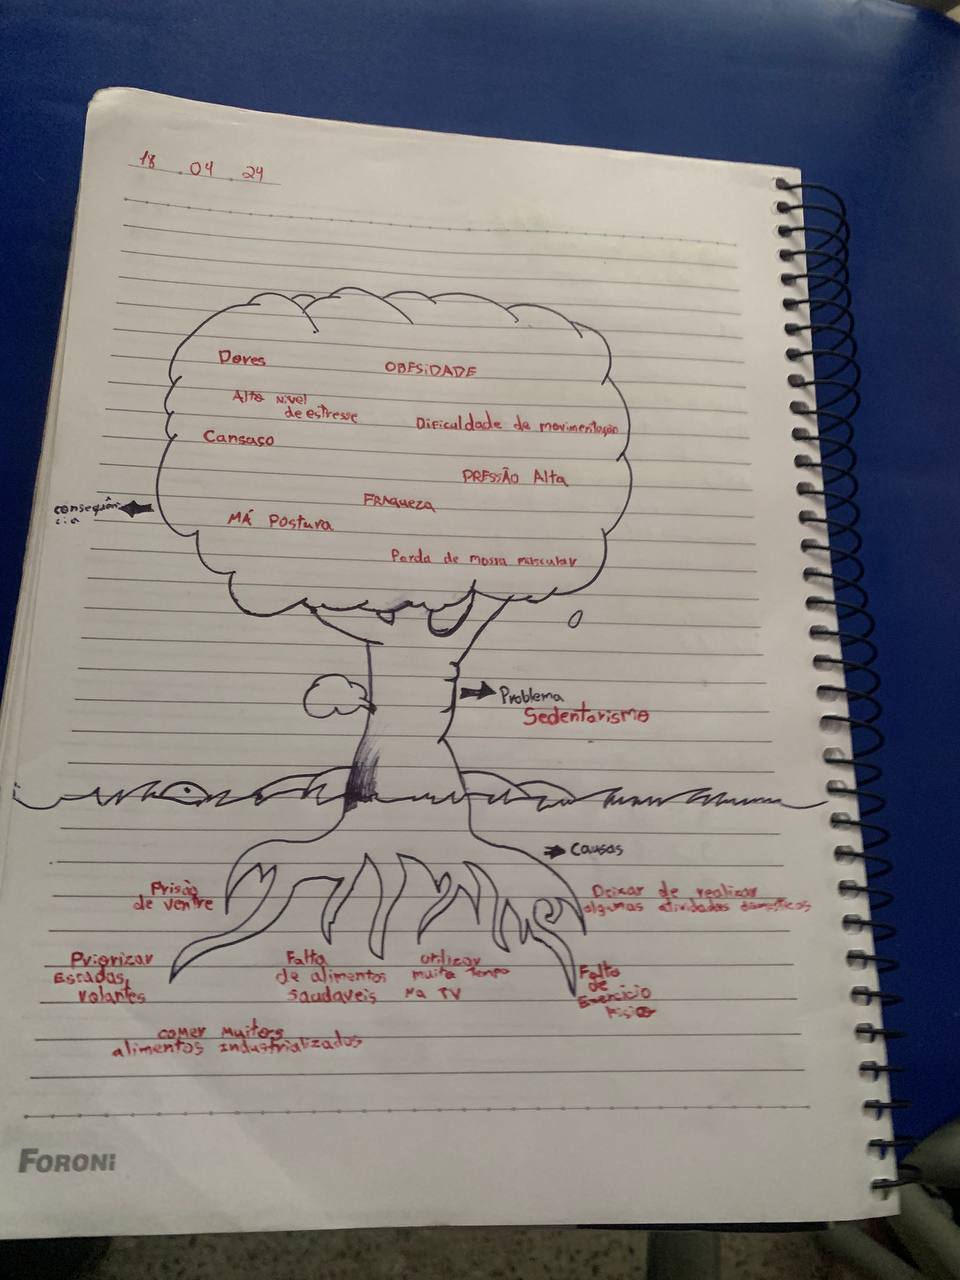 18 . 04 . 24
Dores
OBESIDADE
Alto Nivel
de estresse
Dificuldade de movimentação
Cansaço
PRESSÃO Alta
FRAqueza
consequên
cia
MÁ Postura
Perda de massa muscular
Problema
Sedentarismo
Causas
Prisão
de ventre
Deixar de realizar
algumas atividades domesticas
Priorizar
Escadas
volantes
Falta
de alimentos
Saudaveis
utilizar
muito Tempo
Na TV
Falta
de
Exercicio
Fisico
comer muitos
alimentos industrializados
FORONI